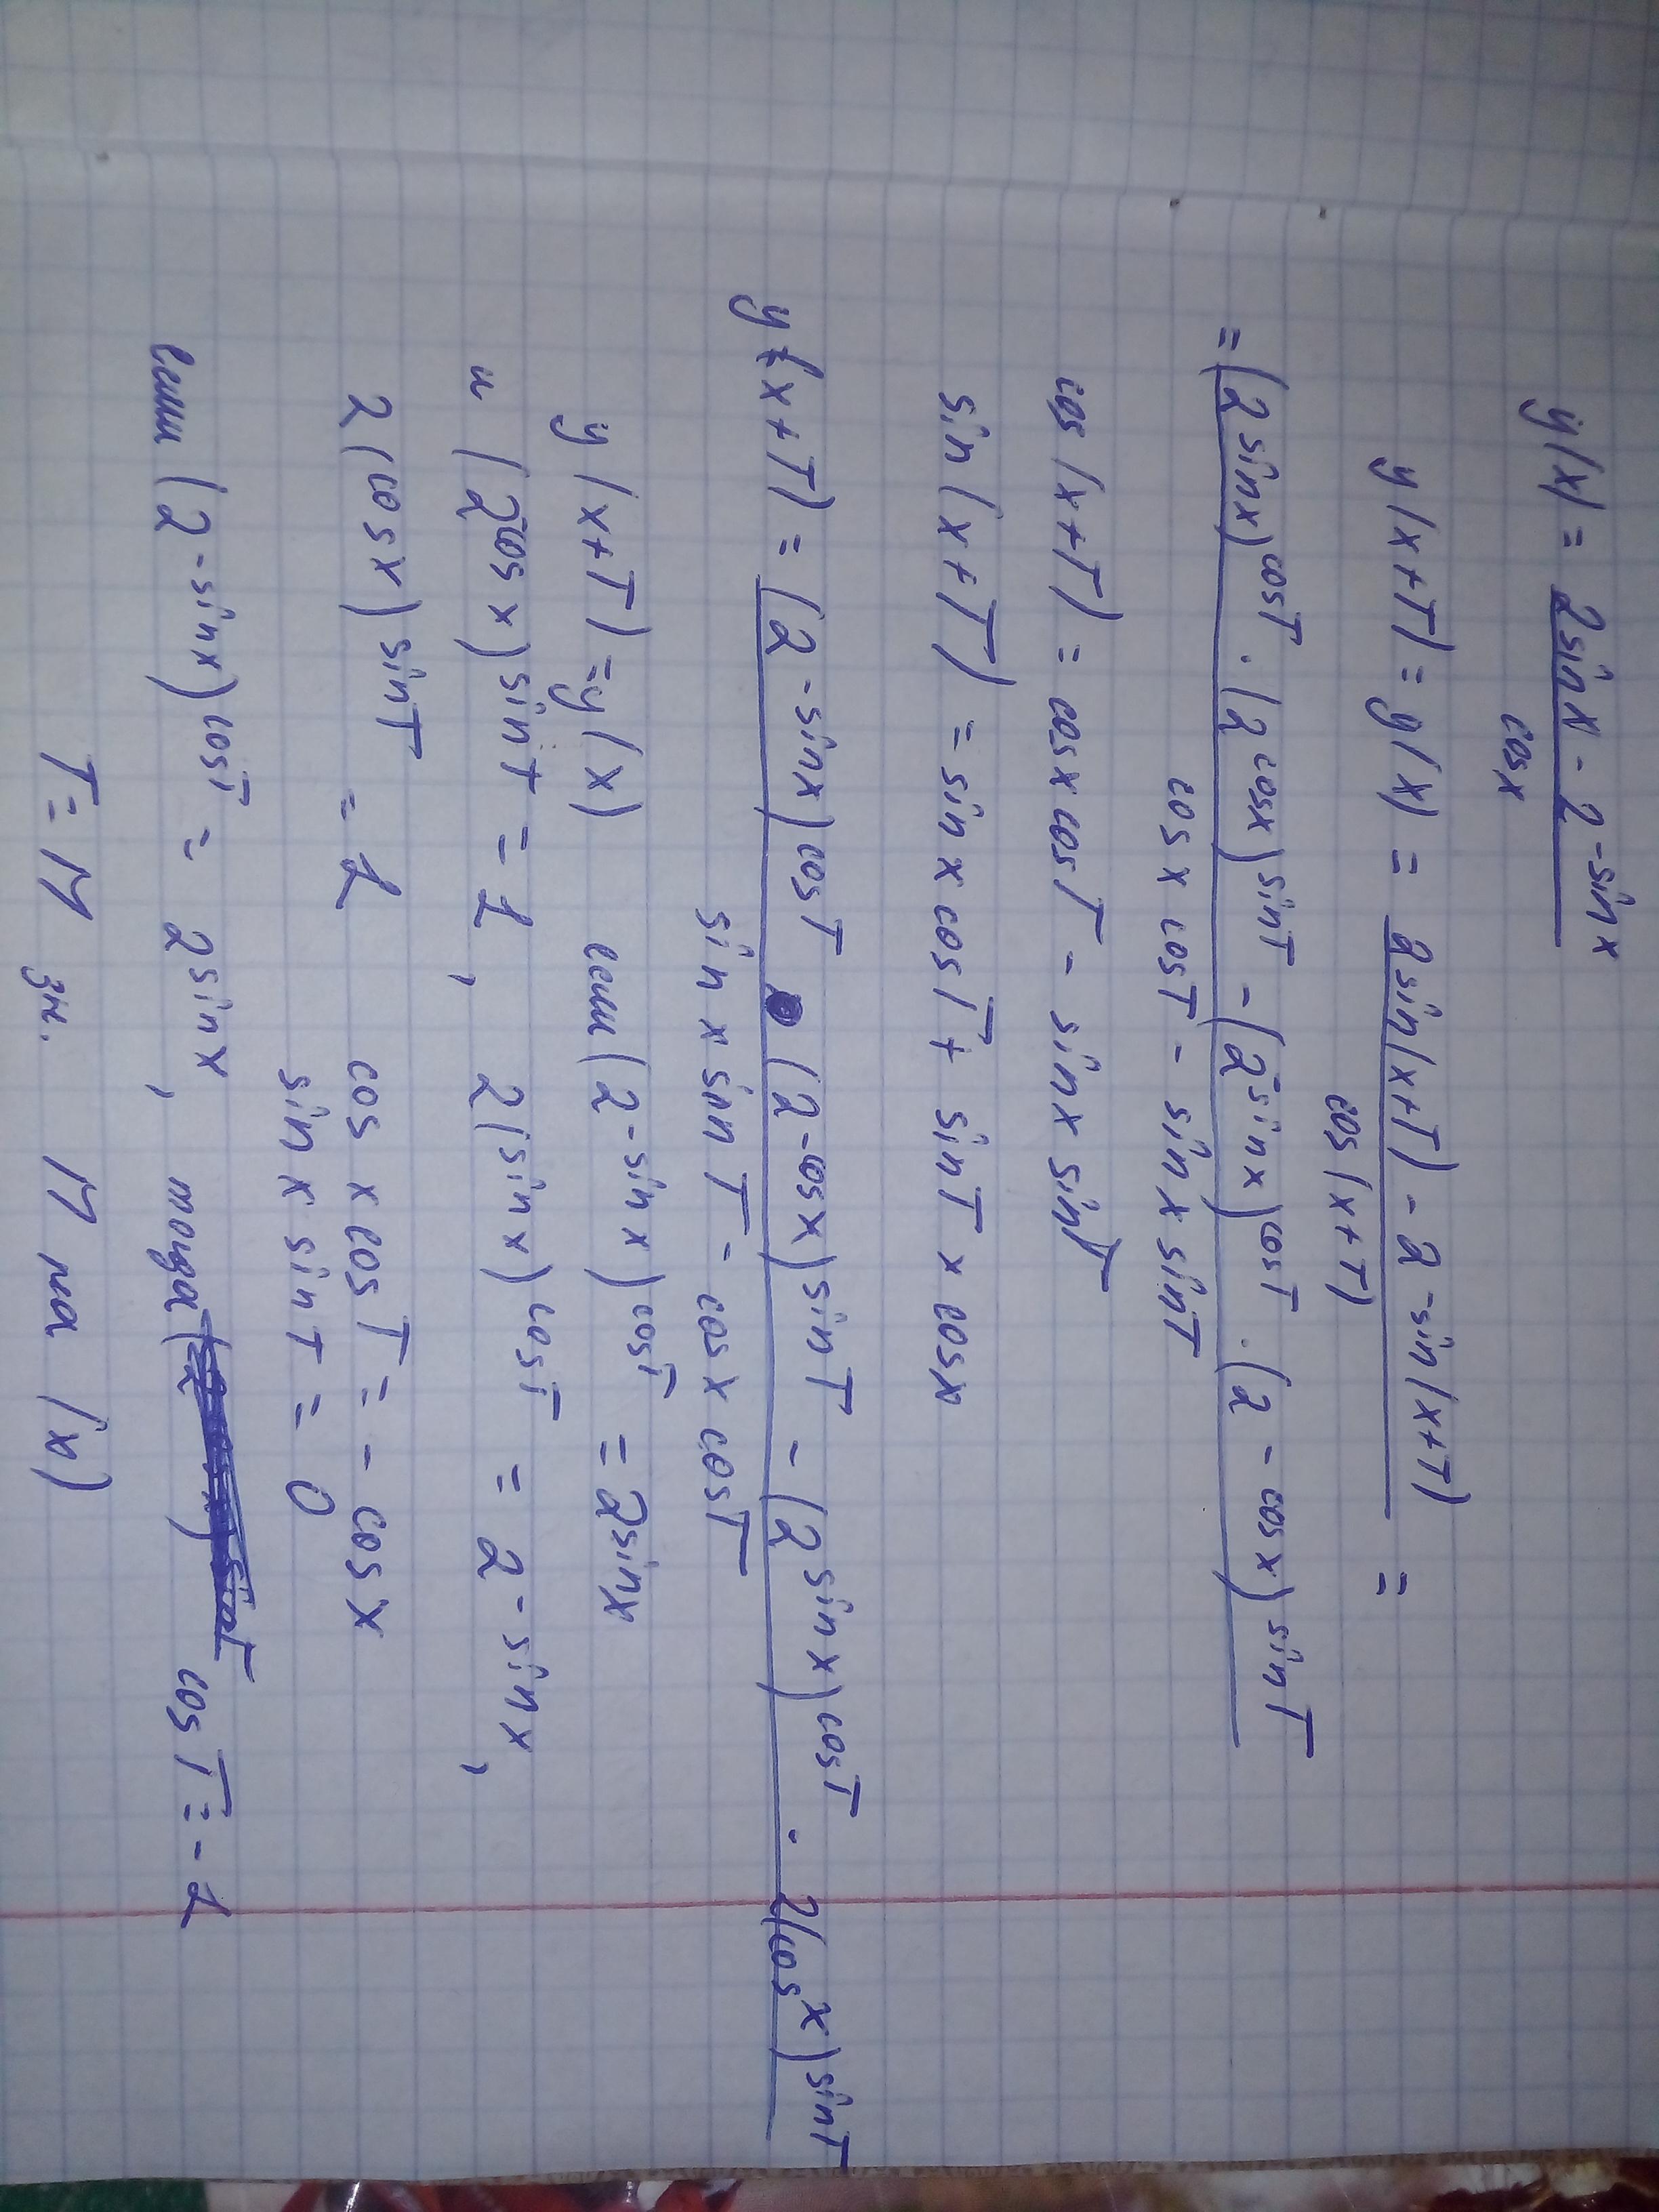 y(x) = 2 sin x - 2 -sin x
cos x
y(x+T) = y(x) = 2 sin(x+T) - 2 -sin(x+T) =
cos(x+T)
= (2 sin x) cos T · (2 cos x) sin T - (2 -sin x) cos T · (2 - cos x) sin T
cos x cos T - sin x sin T
cos (x+T) = cos x cos T - sin x sin T
sin (x+T) = sin x cos T + sin T x cos x
y (x+T) = (2 - sin x) cos T · (2 - cos x) sin T - (2 sin x) cos T · 2(cos x) sin T
sin x sin T - cos x cos T
y (x+T) = y(x) если (2 - sin x) cos T = 2 sin x
и (2 cos x) sin T = 1, 2(sin x) cos T = 2 - sin x,
2 (cos x) sin T = 1 cos x cos T = - cos x
sin x sin T = 0
если (2 - sin x) cos T = 2 sin x, тогда cos T = -1
T = П зн. П на (x)